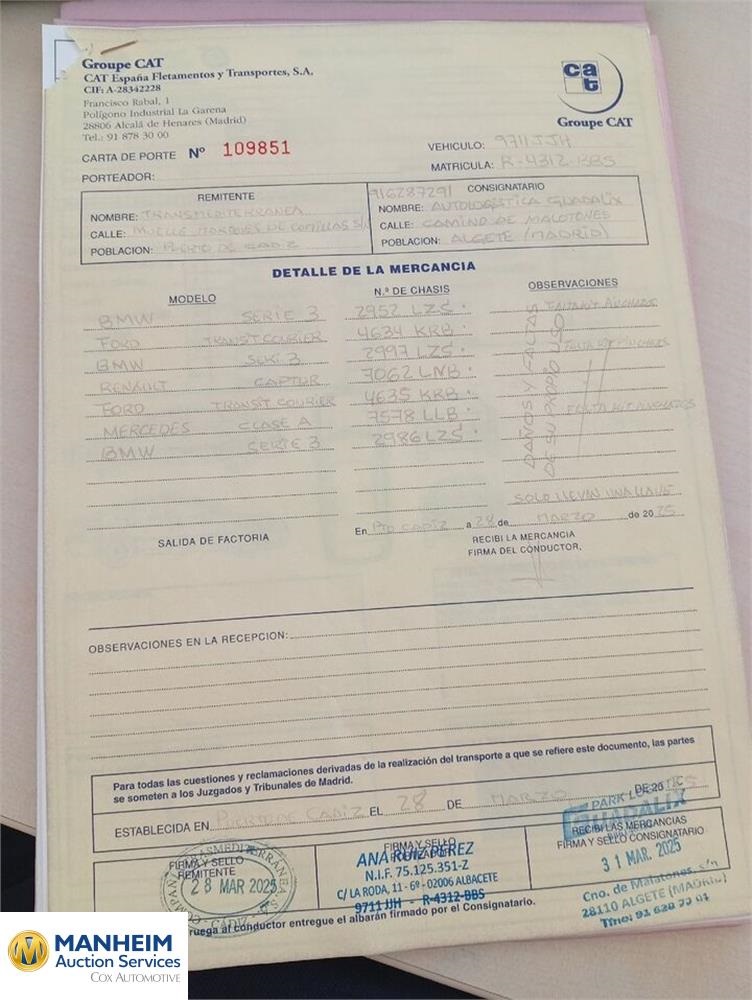 Groupe CAT
CAT España Fletamentos y Transportes, S.A.
CIF: A-28342228
Francisco Rabal, 1
Polígono Industrial La Garena
28806 Alcalá de Henares (Madrid)
Tel.: 91 878 30 00
cat
Groupe CAT
CARTA DE PORTE Nº 109851
VEHICULO: 9711JJH
PORTEADOR:
MATRICULA: R-4312-BBS
REMITENTE
NOMBRE: TRANSMEDITERRANEA
CALLE: MUELLE MARQUES DE COMILLAS S/N
POBLACION: PUERTO DE CADIZ
916287291 CONSIGNATARIO
NOMBRE: AUTOLOGISTICA GUADALIX
CALLE: CAMINO DE MALOTONES
POBLACION: ALGETE (MADRID)
DETALLE DE LA MERCANCIA
MODELO N.º DE CHASIS OBSERVACIONES
BMW SERIE 3 2952 LZS FALTA KIT PINCHAZOS
FORD TRANSIT COURIER 4634 KRB
BMW SERI 3 2997 LZS FALTA KIT PINCHAZOS
RENAULT CAPTUR 7062 LNB
FORD TRANSIT COURIER 4635 KRB FALTA KIT PINCHAZOS
MERCEDES CLASE A 7578 LLB
BMW SERIE 3 2986 LZS
DAÑOS Y FALTAS
DE SU PROPIO USO
SOLO LLEVAN UNA LLAVE
En PTO CADIZ a 28 de MARZO de 2025
SALIDA DE FACTORIA
RECIBI LA MERCANCIA
FIRMA DEL CONDUCTOR,
OBSERVACIONES EN LA RECEPCION:
Para todas las cuestiones y reclamaciones derivadas de la realización del transporte a que se refiere este documento, las partes
se someten a los Juzgados y Tribunales de Madrid.
ESTABLECIDA EN PUERTO DE CADIZ EL 28 DE MARZO DE 20
FIRMA Y SELLO
REMITENTE
28 MAR 2025
CADIZ
FIRMA Y SELLO
ANA RUIZ PEREZ
N.I.F. 75.125.351-Z
C/ LA RODA, 11 - 6º - 02006 ALBACETE
9711 JJH - R-4312-BBS
PARK LOGISTIC
GUADALIX
RECIBI LAS MERCANCIAS
FIRMA Y SELLO CONSIGNATARIO
31 MAR. 2025
Cno. de Malatones, s/n
28110 ALGETE (MADRID)
Tfno: 91 628 72 91
ruega al conductor entregue el albarán firmado por el Consignatario.
MANHEIM
Auction Services
COX AUTOMOTIVE